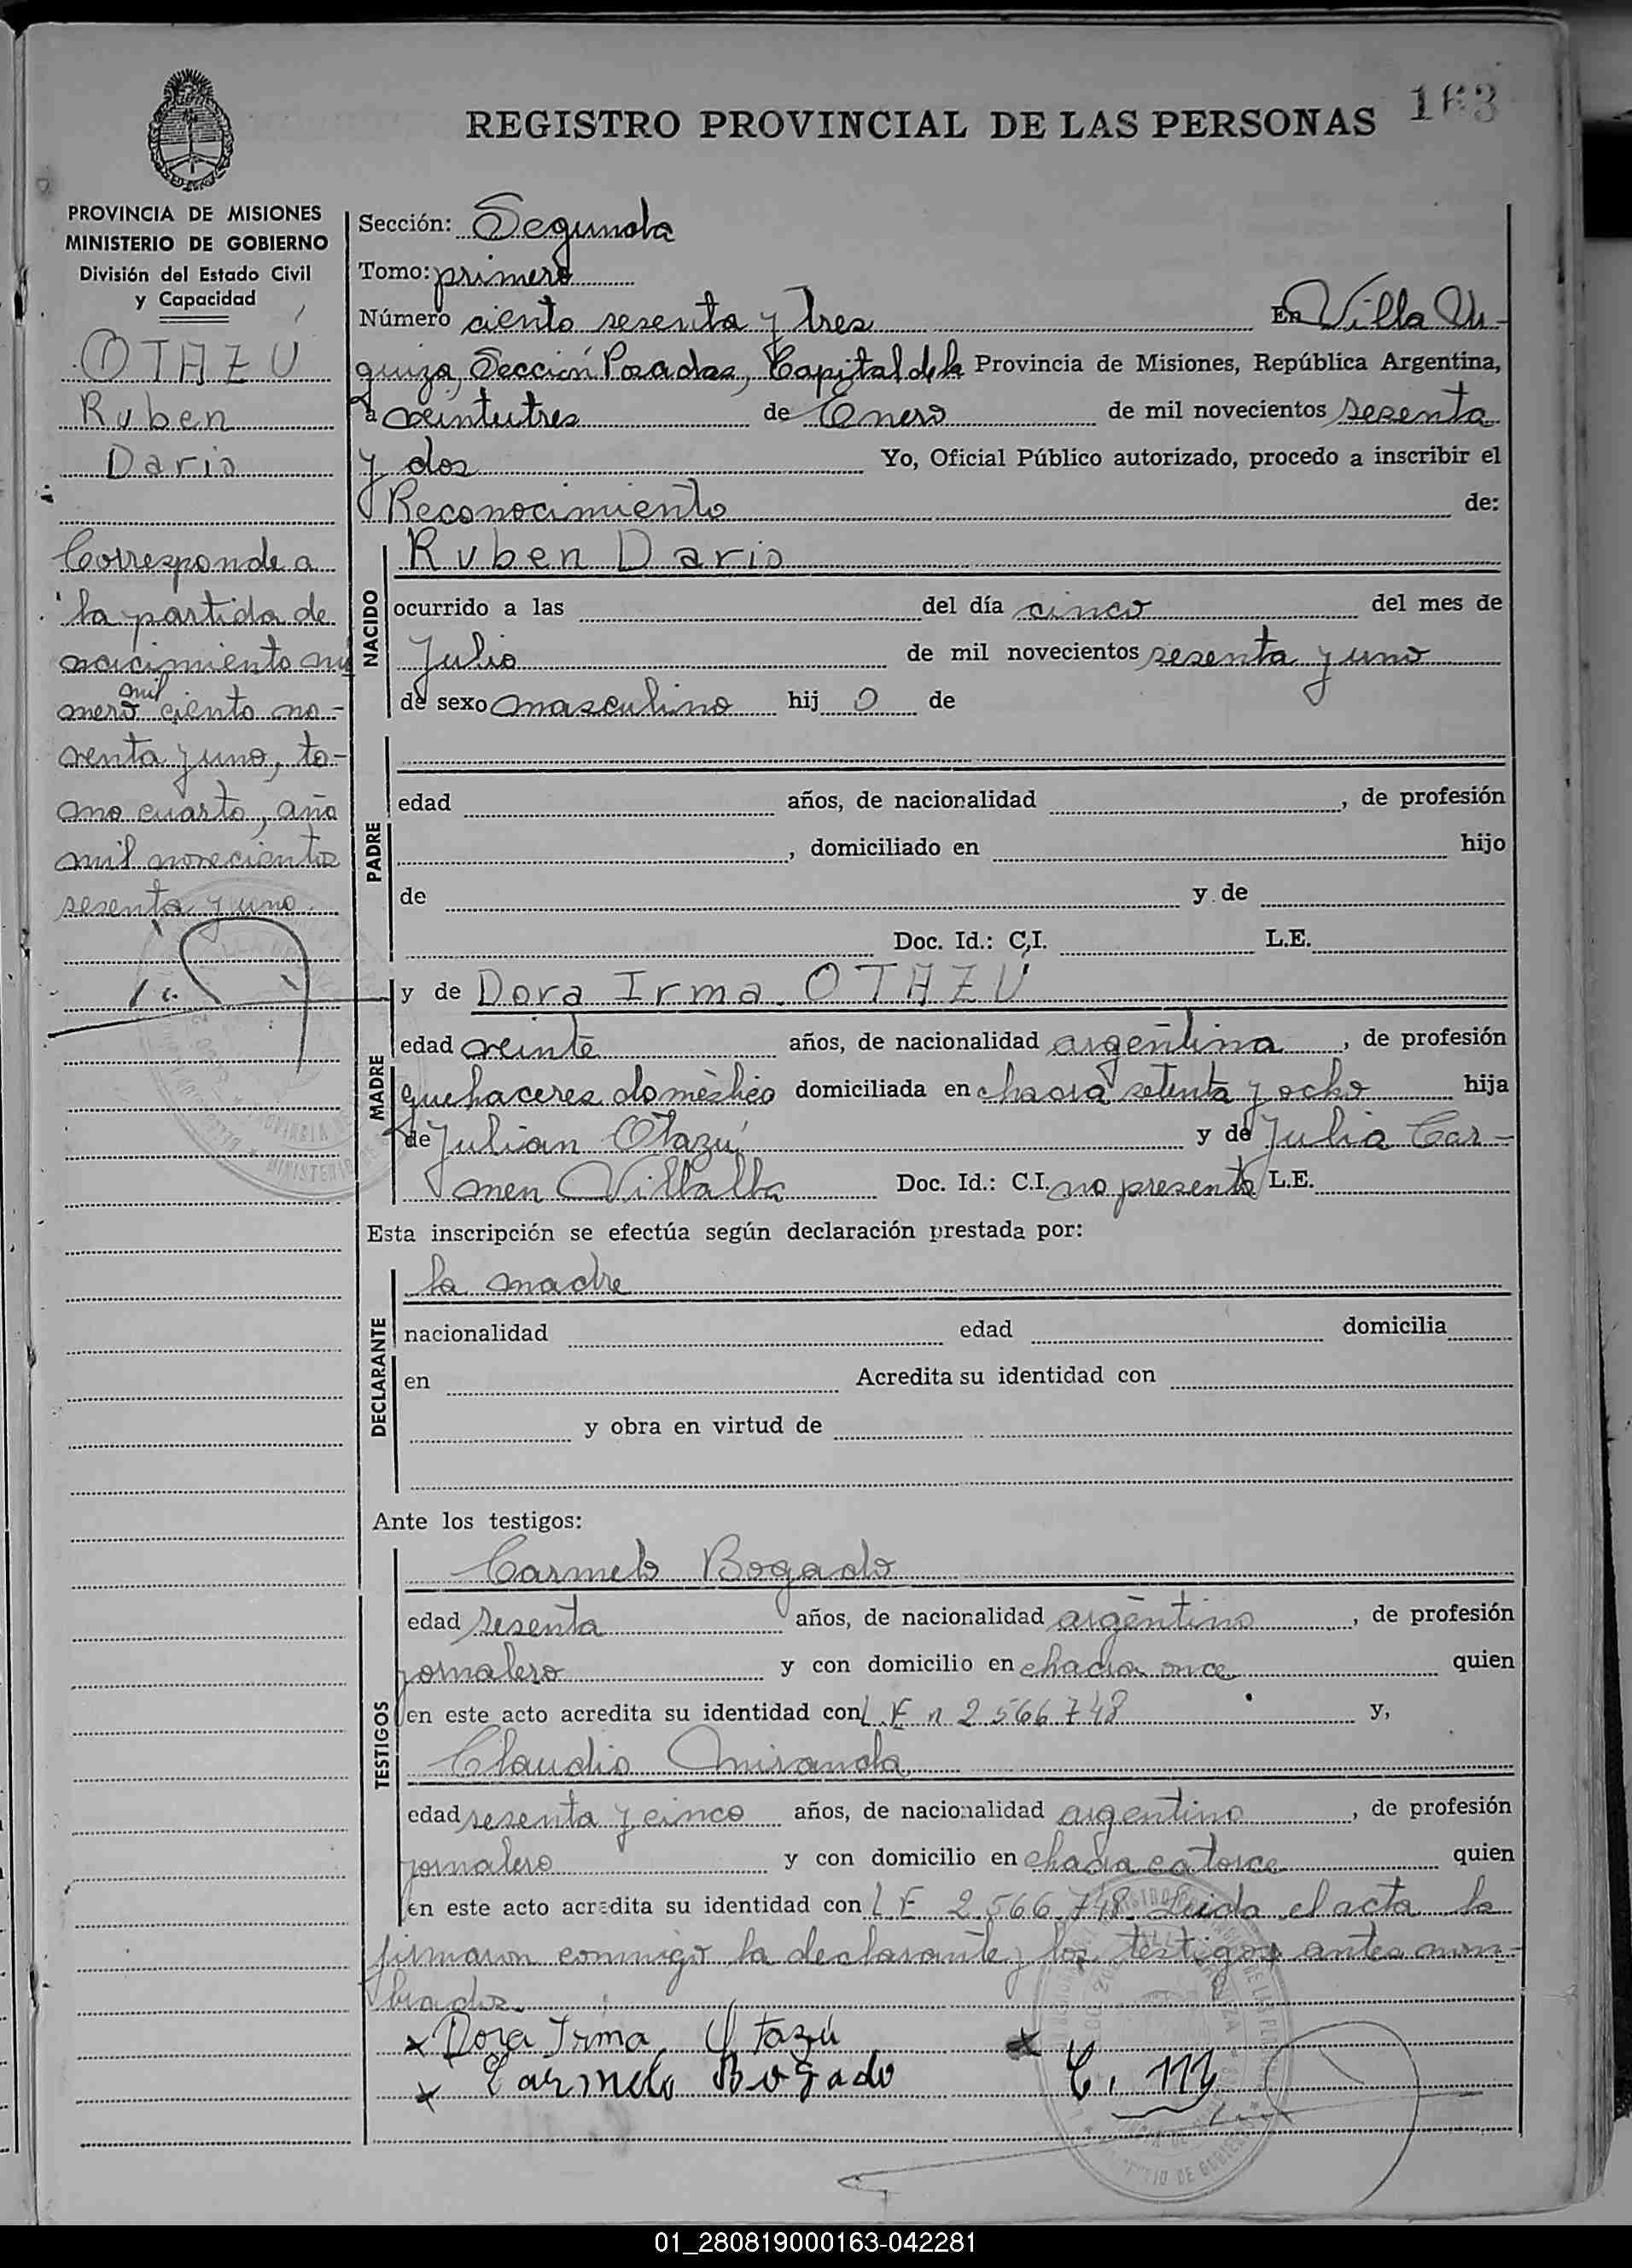 163
REGISTRO PROVINCIAL DE LAS PERSONAS
PROVINCIA DE MISIONES
MINISTERIO DE GOBIERNO
División del Estado Civil
y Capacidad
OTAZÚ
Ruben
Dario
Corresponde a
la partida de
nacimiento nú
mero mil ciento no-
venta y uno, to-
mo cuarto, año
mil novecientos
sesenta y uno.
Sección: Segunda
Tomo: primero
Número ciento sesenta y tres En Villa Ur-
quiza, Sección Posadas, Capital de la Provincia de Misiones, República Argentina,
a veintitres de Enero de mil novecientos sesenta
y dos Yo, Oficial Público autorizado, procedo a inscribir el
Reconocimiento de:
NACIDO
Ruben Dario
ocurrido a las del día cinco del mes de
Julio de mil novecientos sesenta y uno
de sexo masculino hij o de
PADRE
edad años, de nacionalidad , de profesión
, domiciliado en hijo
de y de
Doc. Id.: C.I. L.E.
MADRE
y de Dora Irma OTAZÚ
edad veinte años, de nacionalidad argentina , de profesión
quehaceres doméstico domiciliada en chacra setenta y ocho hija
de Julian Otazú y de Julia Car-
men Villalba Doc. Id.: C.I. no presenta L.E.
Esta inscripción se efectúa según declaración prestada por:
DECLARANTE
la madre
nacionalidad edad domicilia
en Acredita su identidad con
y obra en virtud de
Ante los testigos:
TESTIGOS
Carmelo Bogado
edad sesenta años, de nacionalidad argentino , de profesión
jornalero y con domicilio en chacra once quien
en este acto acredita su identidad con L.E n 2566748 y,
Claudio Miranda
edad sesenta y cinco años, de nacionalidad argentino , de profesión
jornalero y con domicilio en chacra catorce quien
en este acto acredita su identidad con L.E 2.566.748. Leida el acta la
firmaron conmigo la declarante y los testigos antes nom-
brados.
Dora Irma Otazú
Carmelo Bogado C. M
01_280819000163-042281